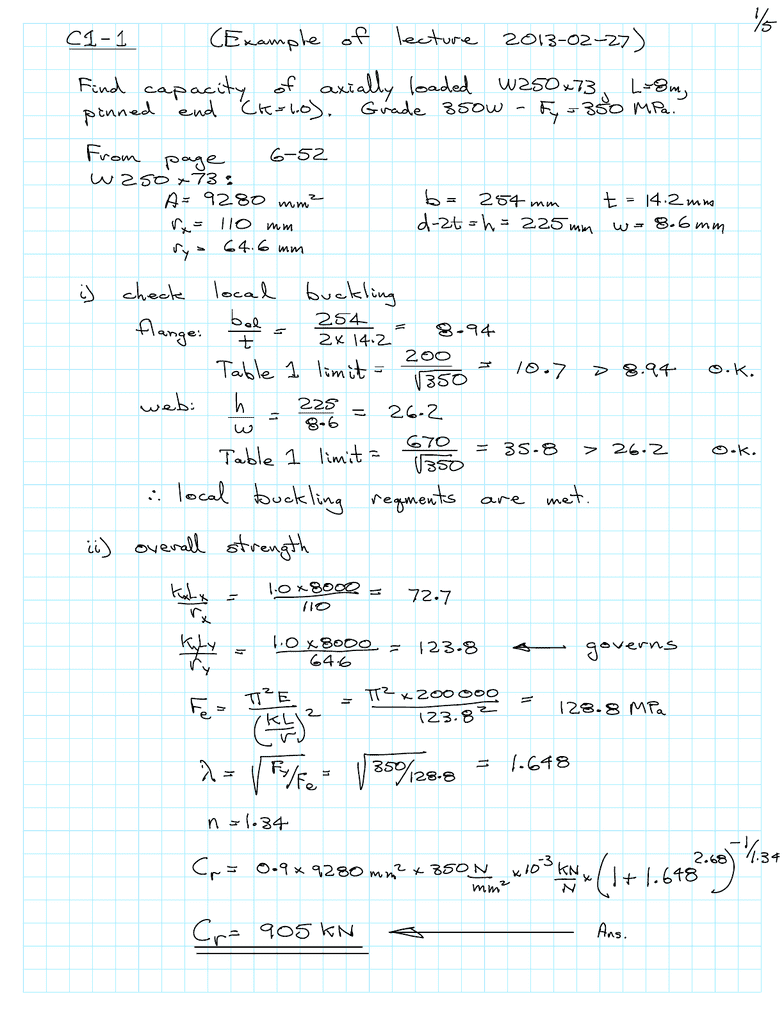 1/5
C1-1 (Example of lecture 2013-02-27)
Find capacity of axially loaded W250x73, L=8m,
pinned end (K=1.0). Grade 350W - Fy = 350 MPa.
From page 6-52
W250x73:
A = 9280 mm² b = 254 mm t = 14.2 mm
rx = 110 mm d-2t = h = 225 mm w = 8.6 mm
ry = 64.6 mm
i) check local buckling
flange: bel/t = 254/(2x14.2) = 8.94
Table 1 limit = 200/√350 = 10.7 > 8.94 O.K.
web: h/w = 225/8.6 = 26.2
Table 1 limit = 670/√350 = 35.8 > 26.2 O.K.
∴ local buckling reqments are met.
ii) overall strength
KxLx/rx = 1.0x8000/110 = 72.7
KyLy/ry = 1.0x8000/64.6 = 123.8 ← governs
Fe = π²E/(KL/r)² = π²x200000/123.8² = 128.8 MPa
λ = √(Fy/Fe) = √(350/128.8) = 1.648
n = 1.34
Cr = 0.9 x 9280 mm² x 350 N/mm² x 10⁻³ KN/N x (1 + 1.648^2.68)^-1/1.34
Cr = 905 KN ← Ans.